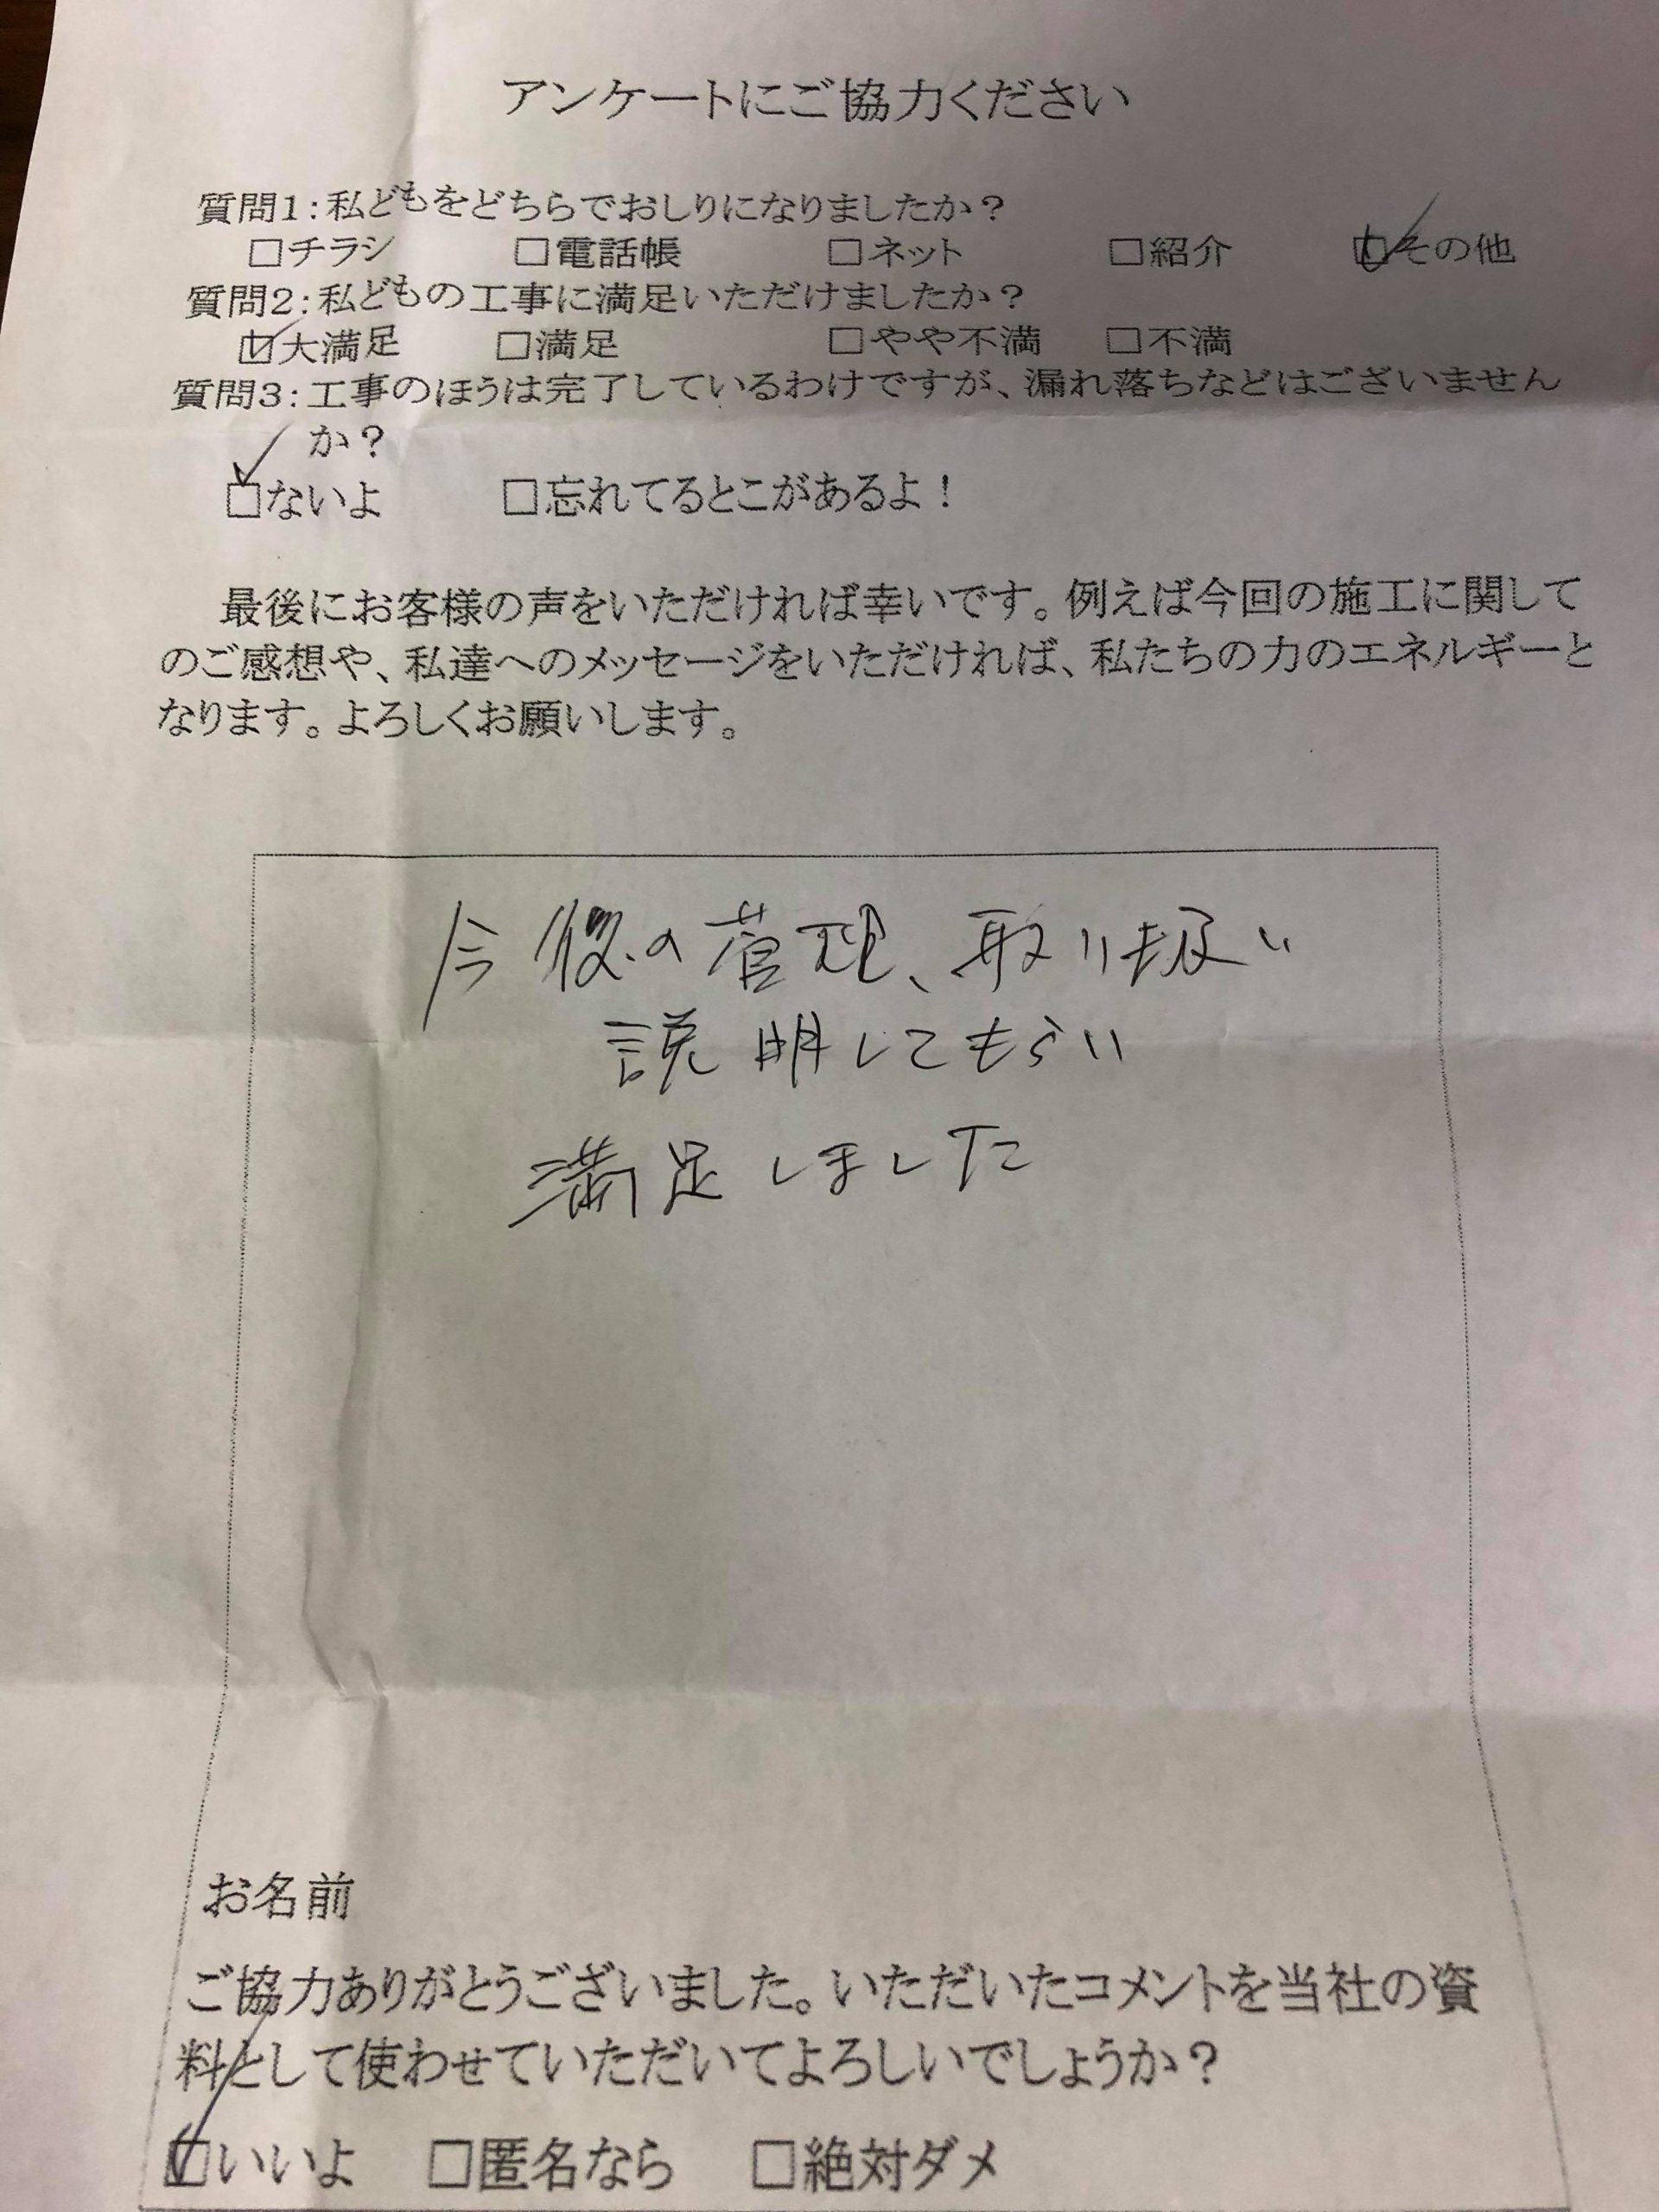 アンケートにご協力ください
質問1:私どもをどちらでおしりになりましたか?
□チラシ □電話帳 □ネット □紹介 ☑その他
質問2:私どもの工事に満足いただけましたか?
☑大満足 □満足 □やや不満 □不満
質問3:工事のほうは完了しているわけですが、漏れ落ちなどはございません
か?
☑ないよ □忘れてるとこがあるよ!
最後にお客様の声をいただければ幸いです。例えば今回の施工に関して
のご感想や、私達へのメッセージをいただければ、私たちの力のエネルギーと
なります。よろしくお願いします。
今後の管理、取り扱い
説明してもらい
満足しました
お名前
ご協力ありがとうございました。いただいたコメントを当社の資
料として使わせていただいてよろしいでしょうか?
☑いいよ □匿名なら □絶対ダメ